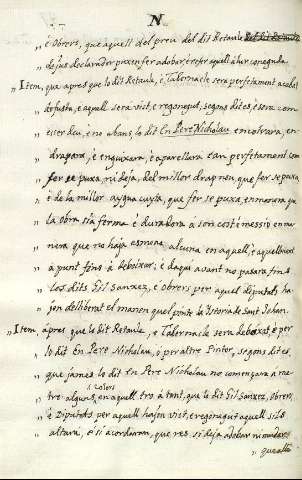 N.
„ è Obrers, que aquell del preu del dit Retaule
„ dejus declarador pux infer adobar è refer aquell à lur coneguda.
„ Item, que apres que lo dit Retaule, è Tabernacle sera perfetament acabat
„ de fusta, è aquell sera vist, è regonegut, segons dit es, è sera com
„ esser deu, e no abans, lo dit En Pere Nicholau encolrara, en
„ draperá, è enguixara, è aparellara tan perfetament com
„ fer se puxa, ni deja, del millor drap neu, que fer se puxa,
„ è de la millor aygua cuyta, que fer se puxa, en manera que
„ la obra sia ferma è duradora à son cost è messio en ma
„ nera que no haja esmena alcuna en aquell, è aquell haver
„ à punt fins à deboixar; è daqui avant no pasara fins
„ Los dits Gil Sanxez, è obrers per aquell diputats ha
„ jen delliberat el manen quel pinte la Istoria de Sant Johan.
„ Item apres que lo dit Retaule, è Tabernacle sera deboxat è per
„ lo dit En Pere Nicholau, ò per altre Pintor, segons dit es,
„ que james lo dit En Pere Nicholau no començara à me
„ tre alguns colors en aquell tro à tant, que lo dit Gil Sanxez, obrers,
„ è Diputats per aquell hajen vist, è regonegut aquell si lo
„ altara, è si acordaran, que res si deja adobar ni mudar
„ quealtr